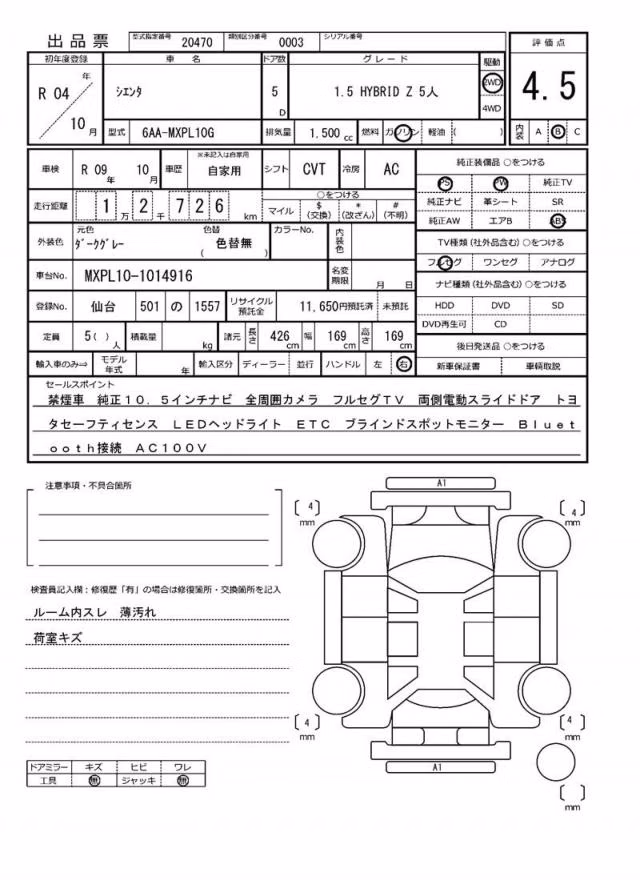 出品票 型式指定番号 20470 類別区分番号 0003 シリアル番号
評価点
4.5
内装 A B C
初年度登録 車名 ドア数 グレード 駆動
R 04 年 10 月
シエンタ 5 D 1.5 HYBRID Z 5人 2WD 4WD
型式 6AA-MXPL10G 排気量 1.500 cc 燃料 ガソリン 軽油 ( )
車検 R 09 年 10 月 車歴 ※未記入は自家用 自家用 シフト CVT 冷房 AC
走行距離 1 万 2 千 7 2 6 km
○をつける
マイル $(交換) *(改ざん) #(不明)
外装色 元色 ダークグレー 色替 ( 色替無 ) カラーNo. 内装色
車台No. MXPL10-1014916 名変期限 月 日
登録No. 仙台 501 の 1557 リサイクル預託金 11,650円預託済 未預託
定員 5( ) 人 積載量 kg 諸元 長さ 426 cm 幅 169 cm 高さ 169 cm
輸入車のみ⇒ モデル年式 年 輸入区分 ディーラー 並行 ハンドル 左 右
純正装備品 ○をつける
PS PW 純正TV
純正ナビ 革シート SR
純正AW エアB ABS
TV種類(社外品含む) ○をつける
フルセグ ワンセグ アナログ
ナビ種類(社外品含む) ○をつける
HDD DVD SD
DVD再生可 CD
後日発送品 ○をつける
新車保証書 車輌取説
セールスポイント
禁煙車 純正10.5インチナビ 全周囲カメラ フルセグTV 両側電動スライドドア トヨ
タセーフティセンス LEDヘッドライト ETC ブラインドスポットモニター Bluet
ooth接続 AC100V
注意事項・不具合箇所
検査員記入欄:修復歴「有」の場合は修復箇所・交換箇所を記入
ルーム内スレ 薄汚れ
荷室キズ
ドアミラー キズ ヒビ ワレ
工具 無 ジャッキ 無
A1
[ 4 ] mm
[ 4 ] mm
[ 4 ] mm
[ 4 ] mm
A1
[ ] mm